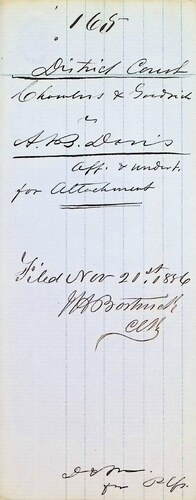 165
District Court
Chambers & Goodrich
vs
A.B. Davis
Aff. & undert.
for Attachment
Filed Nov 21st. 1856
Bostwick
Clk
for Plfs.